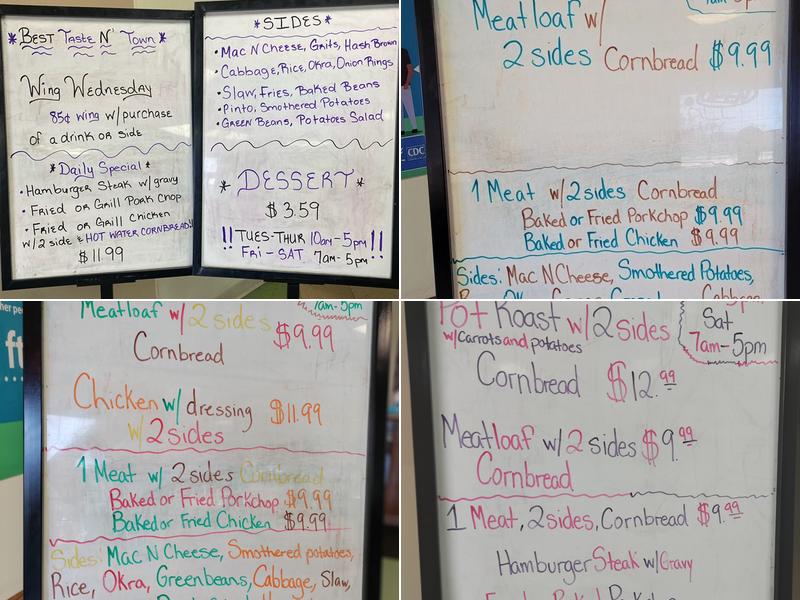 *Best Taste N' Town*
Wing Wednesday
85¢ wing w/purchase
of a drink or side
*Daily Special*
• Hamburger Steak w/gravy
• Fried or Grill Pork Chop
• Fried or Grill Chicken
w/2 side & HOT WATER CORNBREAD!!
$11.99
*SIDES*
• Mac N Cheese, Grits, Hash Brown
• Cabbage, Rice, Okra, Onion Rings
• Slaw, Fries, Baked Beans
• Pinto, Smothered Potatoes
• Green Beans, Potatoes Salad
*DESSERT*
$3.59
!! TUES-THUR 10am-5pm !!
FRI - SAT 7am-5pm
CDC
Meatloaf w/
2 sides Cornbread $9.99
1 Meat w/2 sides Cornbread
Baked or Fried Porkchop $9.99
Baked or Fried Chicken $9.99
Sides: Mac N Cheese, Smothered Potatoes,
Meatloaf w/2 sides $9.99
Cornbread
7am-5pm
Chicken w/dressing $11.99
w/2 sides
1 Meat w/ 2 sides Cornbread
Baked or Fried Porkchop $9.99
Baked or Fried Chicken $9.99
Sides: Mac N Cheese, Smothered potatoes,
Rice, Okra, Greenbeans, Cabbage, Slaw,
Pot Roast w/2 sides
w/carrots and potatoes
Cornbread $12.99
Sat
7am-5pm
Meatloaf w/2 sides $9.99
Cornbread
1 Meat, 2 sides, Cornbread $9.99
Hamburger Steak w/Gravy